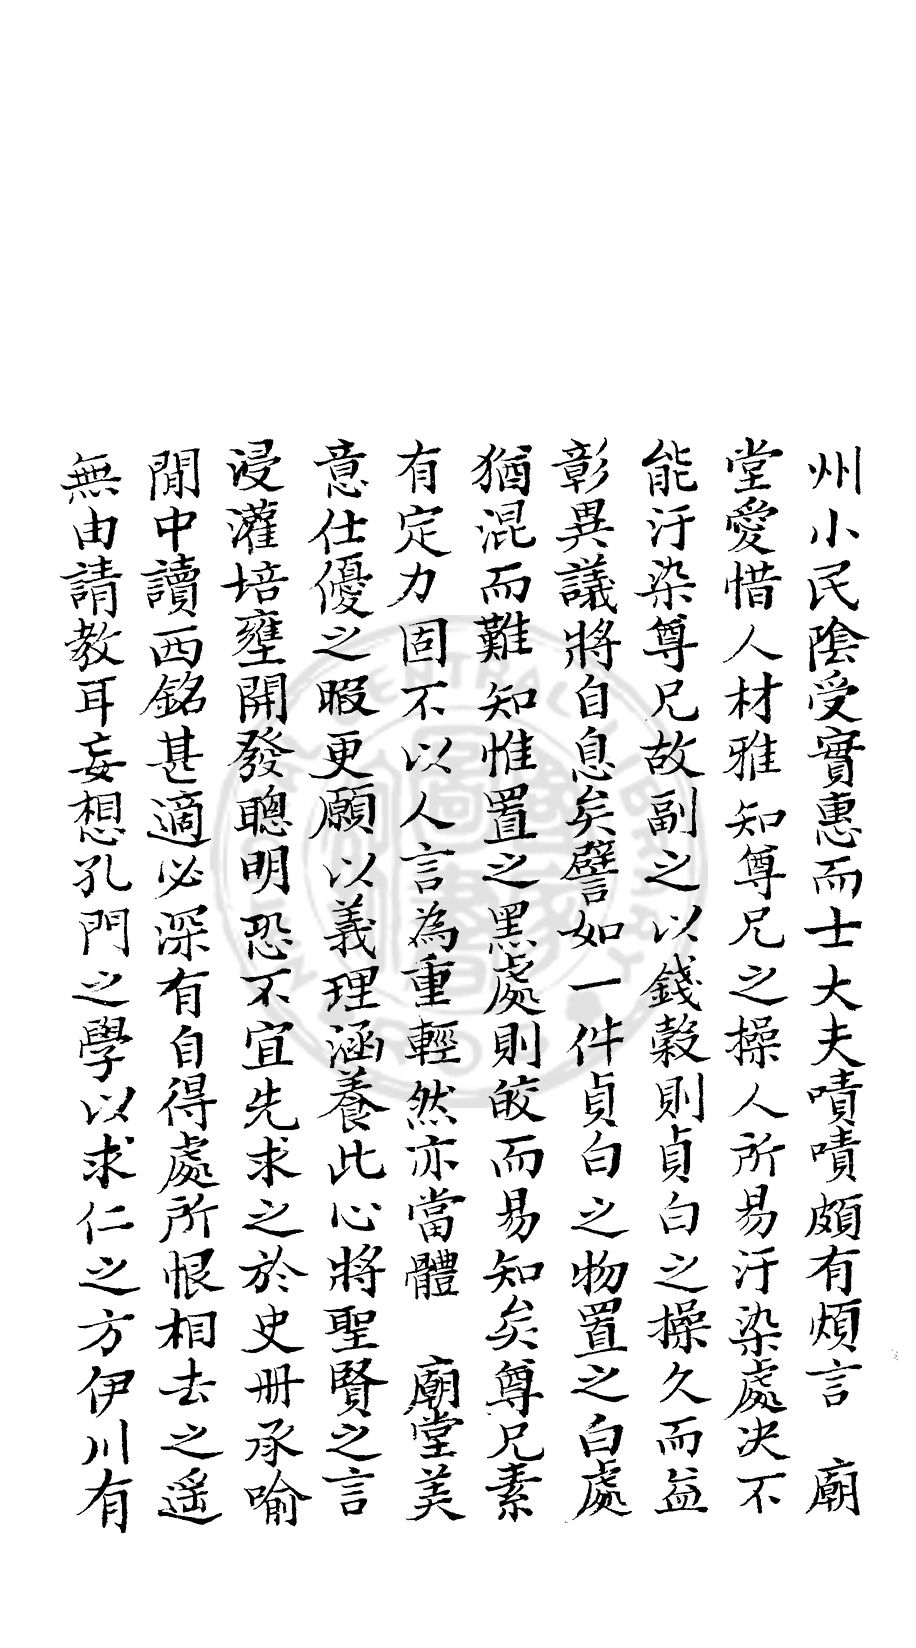 州小民陰受實惠而士大夫嘖嘖頗有煩言　廟
堂愛惜人材雅知尊兄之操人所易汙染處決不
能汙染尊兄故副之以錢榖則貞白之操久而益
彰異議將自息矣譬如一件貞白之物置之白處
猶混而難知惟置之黑處則皎而易知矣尊兄素
有定力固不以人言為重輕然亦當體　廟堂美
意仕優之暇更願以義理涵養此心將聖賢之言
浸灌培壅開發聰明恐不宜先求之於史冊承喻
閒中讀西銘甚適必深有自得處所恨相去之遥
無由請教耳妄想孔門之學以求仁之方伊川有